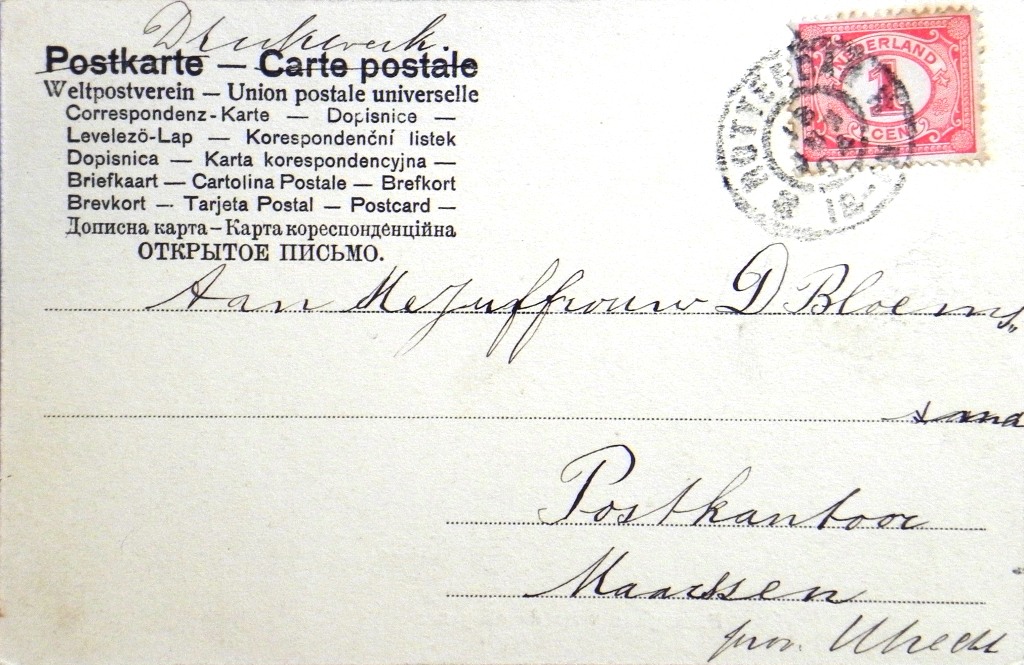 Drukwerk.
Postkarte — Carte postale
Weltpostverein — Union postale universelle
Correspondenz-Karte — Dopisnice —
Levelező-Lap — Korespondenční listek
Dopisnica — Karta korespondencyjna —
Briefkaart — Cartolina Postale — Brefkort
Brevkort — Tarjeta Postal — Postcard —
Дописна карта — Карта кореспонденційна
ОТКРЫТОЕ ПИСЬМО.
NEDERLAND
1
CENT
ROTTERD
Aan Mejuffrouw D Bloem
Postkantoor
Maarssen
prov. Utrecht